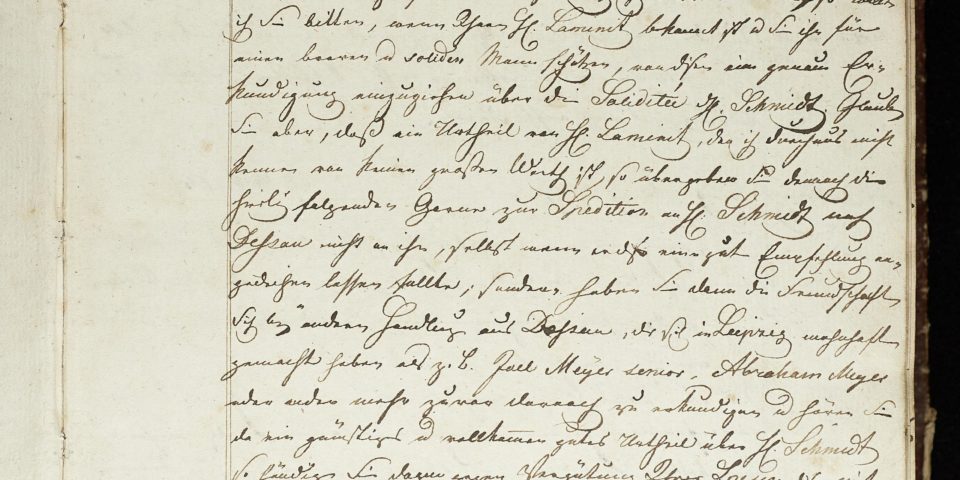 ich Sie bitten, wenn Ihnen H. Laminit bekannt ist u Sie ihn für
einen braven u soliden Mann schätzen, von diesem eine genaue Er=
kundigung einzuziehen über die Solidität H. Schmidt, Glauben
Sie aber, daß ein Urtheil von H. Laminit, den ich durchaus nicht
kenne von keinen großen Werth ist, so übergeben Sie dennoch die
hierbei folgenden Garne zur Spedition an H. Schmidt nach
Dessau nicht an ihn, selbst wenn er ihm eine gute Empfehlung an=
gedeihen lassen sollte, sondern haben Sie dann die Freundschaft
sich bey andern Handlung aus Dessau, die sich in Leipzig wohnhaft
gemacht haben als z. B. Joel Meyer senior, Abraham Meyer
oder andere mehr zuvor darnach zu erkundigen u hören Sie
da ein günstiges u vollkommen gutes Urtheil über H. Schmidt
so händigen Sie dann gegen Vergütung Ihrer